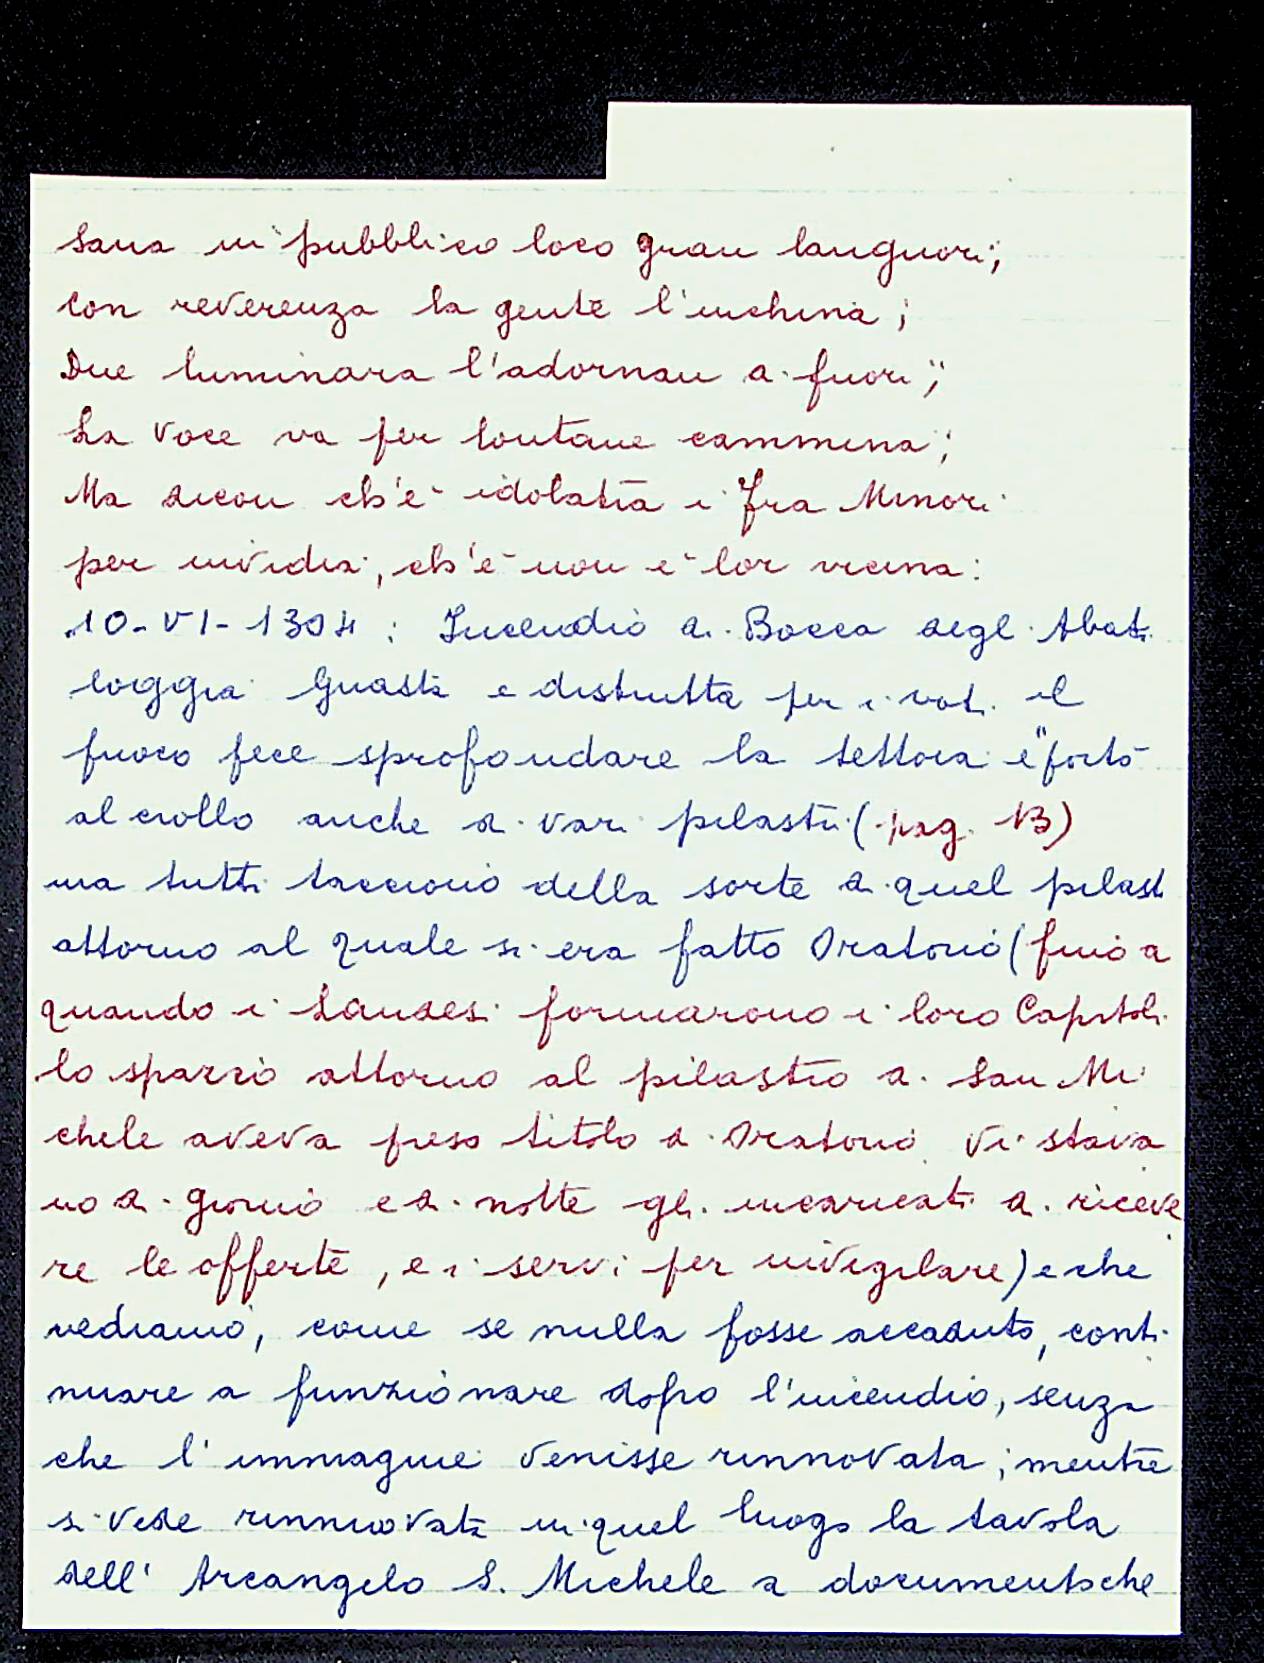 Sana in pubblico loco gran languori;
con reverenza la gente l'inchina;
Due luminara l'adornan di fuori;
La voce va per lontane cammina;
Ma dicon ch'è idolatra i Fra Minori
per invidia, ch'è non è lor vicina:
10-VI-1304: Incendio di Bocca degl. Abati
loggia guasta e distrutta per i voti. il
fuoco fece sprofondare la tettoia e "portò
al crollo anche di vari pilastri (pag. 13)
ma tutti tacciono della sorte di quel pilast
attorno al quale si era fatto Oratorio (fino a
quando i Laudesi formarono i loro Capitoli
lo spazio attorno al pilastro di San Mi
chele aveva preso titolo di Oratorio vi stava
no di giorno e di notte gli incaricati a riceve
re le offerte, e i servi per invigilare) e che
vediamo, come se nulla fosse accaduto, conti
nuare a funzionare dopo l'incendio, senza
che l'immagine venisse rinnovata; mentre
si vede rinnovata in quel luogo la tavola
dell'Arcangelo S. Michele a documento che